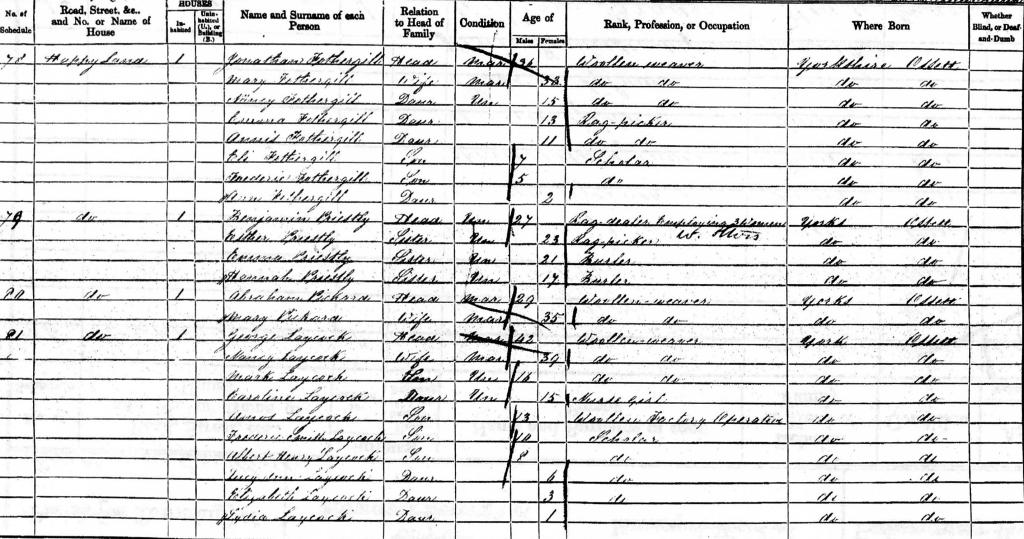 No. of Schedule | Road, Street, &c., and No. or Name of House | HOUSES Inhabited | Uninhabited (U.), or Building (B.) | Name and Surname of each Person | Relation to Head of Family | Condition | Age of Males | Females | Rank, Profession, or Occupation | Where Born | Whether Blind, or Deaf-and-Dumb
78 Happy Land 1 Jonathan Fothergill Head Mar 36 Woollen weaver Yorkshire Ossett
Mary Fothergill Wife Mar 38 do do do do
Nancy Fothergill Daur Un 15 do do do do
Emma Fothergill Daur 13 Rag-picker do do
Annis Fothergill Daur 11 do do do do
Eli Fothergill Son 7 Scholar do do
Frederic Fothergill Son 5 do do do
Ann Fothergill Daur 2 do do
79 do 1 Benjamin Briestly Head Un 27 Rag-dealer Employing 3 Yorks Ossett
Esther Briestly Sister Un 23 Rag-picker do do
Emma Briestly Sister Un 21 Burler do do
Hannah Briestly Sister Un 17 Burler do do
80 do 1 Abraham Pickard Head Mar 29 Woollen-weaver Yorks Ossett
Mary Pickard Wife Mar 35 do do do do
81 do 1 George Laycock Head Mar 42 Woollen-weaver York Ossett
Nancy Laycock Wife Mar 39 do do do do
Mark Laycock Son Un 16 do do do do
Caroline Laycock Daur Un 15 Nurse girl do do
Amos Laycock Son 13 Woollen Factory Operative do do
Frederic Smith Laycock Son 10 Scholar do do
Albert Henry Laycock Son 8 do do do
Lucy Ann Laycock Daur 6 do do do
Elizabeth Laycock Daur 3 do do do
Lydia Laycock Daur 1 do do